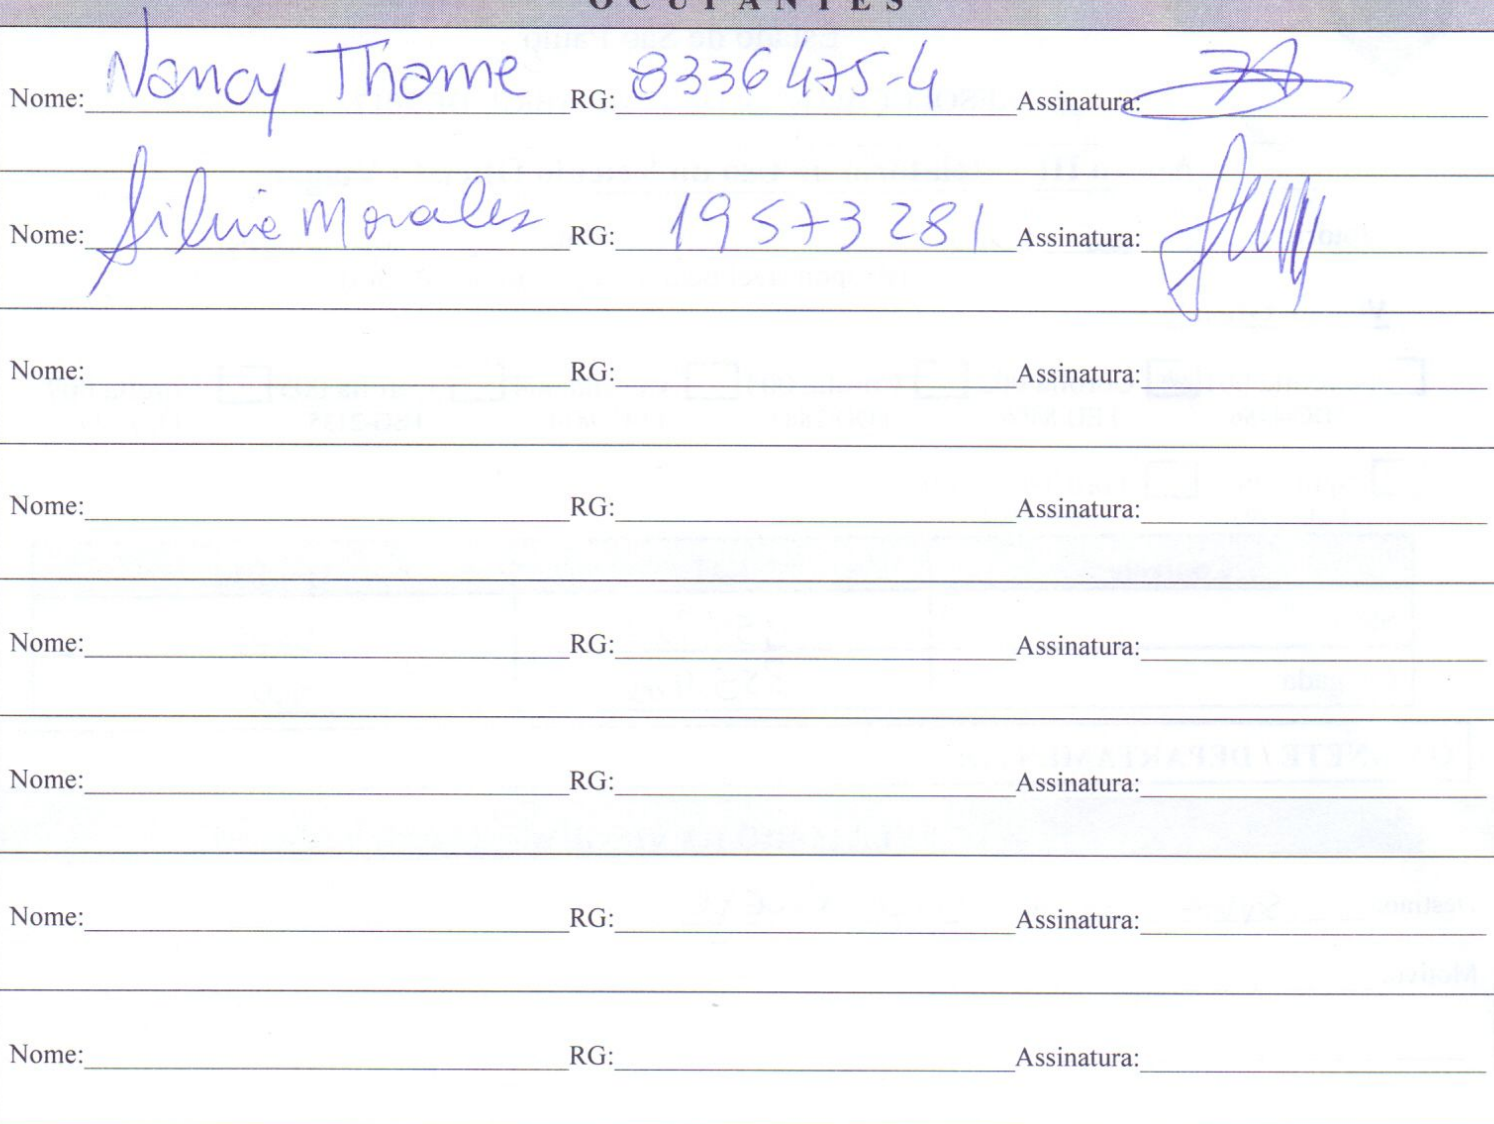 OCUPANTES
Nome: Nancy Thame RG: 8336475-4 Assinatura:
Nome: Silvia Morales RG: 19573281 Assinatura:
Nome: RG: Assinatura:
Nome: RG: Assinatura:
Nome: RG: Assinatura:
Nome: RG: Assinatura:
Nome: RG: Assinatura:
Nome: RG: Assinatura: